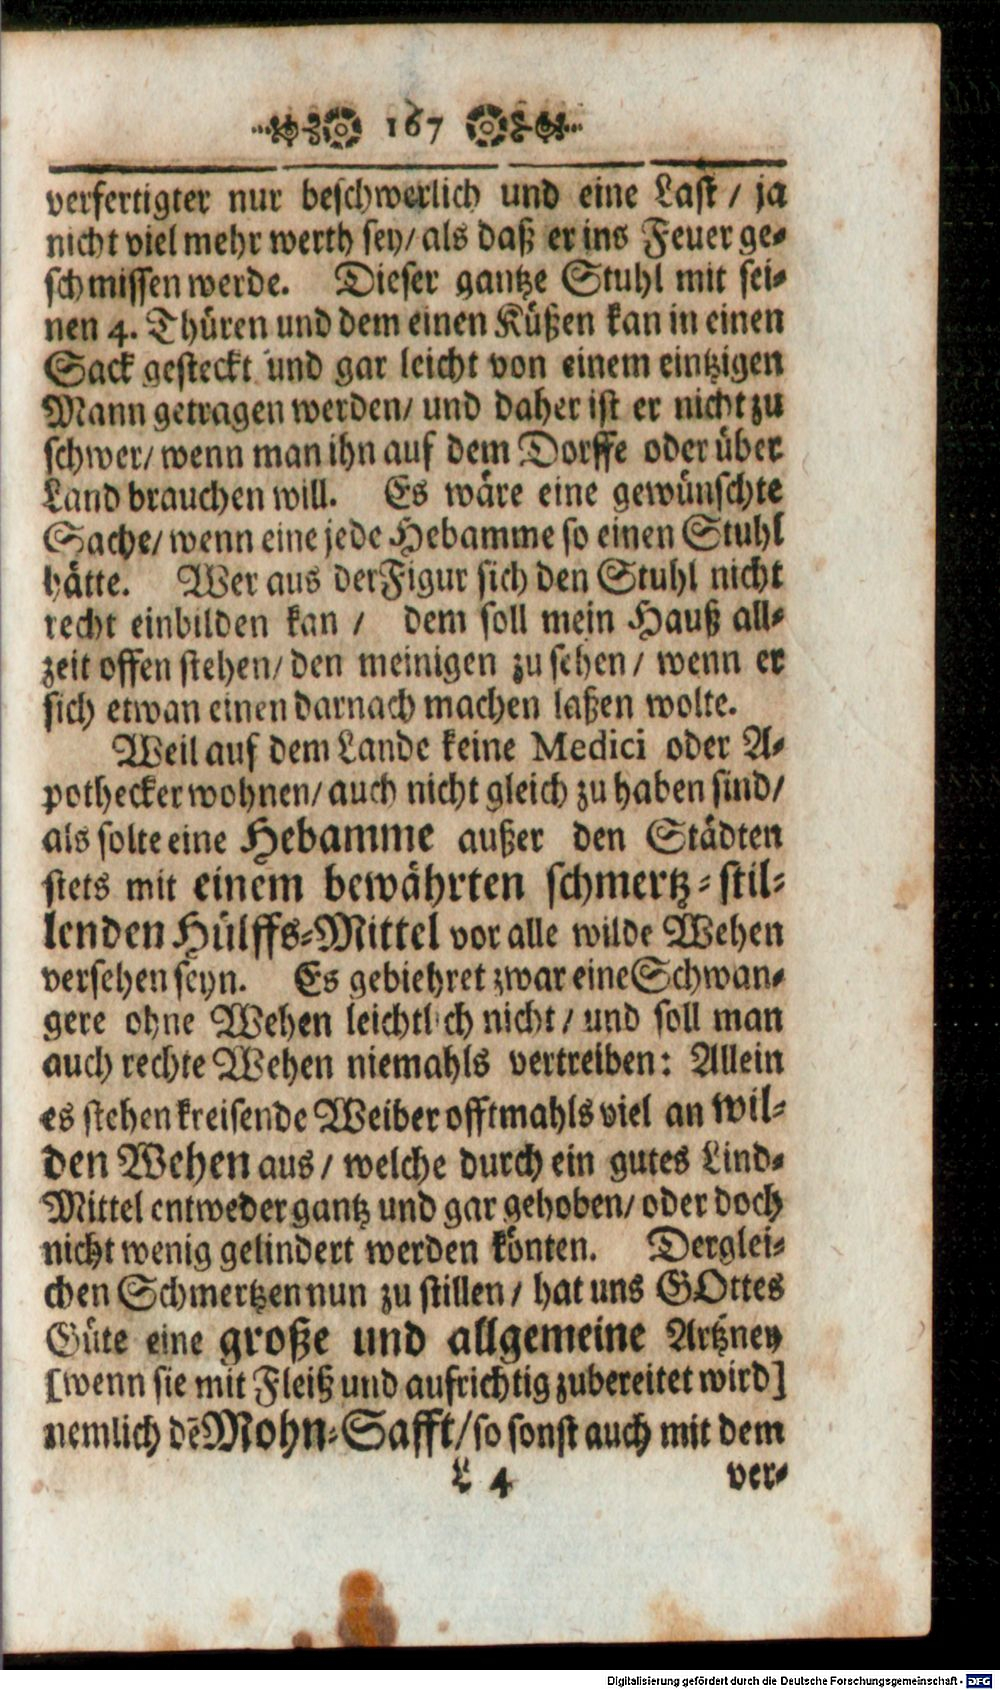 167
verfertigter nur beschwerlich und eine Last / ja
nicht viel mehr werth sey / als daß er ins Feuer ge-
schmissen werde. Dieser gantze Stuhl mit sei-
nen 4. Thüren und dem einen Küßen kan in einen
Sack gesteckt und gar leicht von einem eintzigen
Mann getragen werden / und daher ist er nicht zu
schwer / wenn man ihn auf dem Dorffe oder über
Land brauchen will. Es wäre eine gewünschte
Sache / wenn eine jede Hebamme so einen Stuhl
hätte. Wer aus der Figur sich den Stuhl nicht
recht einbilden kan / dem soll mein Hauß all-
zeit offen stehen / den meinigen zu sehen / wenn er
sich etwan einen darnach machen laßen wolte.
Weil auf dem Lande keine Medici oder A-
pothecker wohnen / auch nicht gleich zu haben sind /
als solte eine Hebamme außer den Städten
stets mit einem bewährten schmertz-stil-
lenden Hülffs-Mittel vor alle wilde Wehen
versehen seyn. Es gebiehret zwar eine Schwan-
gere ohne Wehen leichtlich nicht / und soll man
auch rechte Wehen niemahls vertreiben: Allein
es stehen kreisende Weiber offtmahls viel an wil-
den Wehen aus / welche durch ein gutes Lind-
Mittel entweder gantz und gar gehoben / oder doch
nicht wenig gelindert werden könten. Derglei-
chen Schmertzen nun zu stillen / hat uns GOttes
Güte eine große und allgemeine Artzney
[wenn sie mit Fleiß und aufrichtig zubereitet wird]
nemlich dē Mohn-Safft / so sonst auch mit dem
L 4 ver-
Digitalisierung gefördert durch die Deutsche Forschungsgemeinschaft - DFG